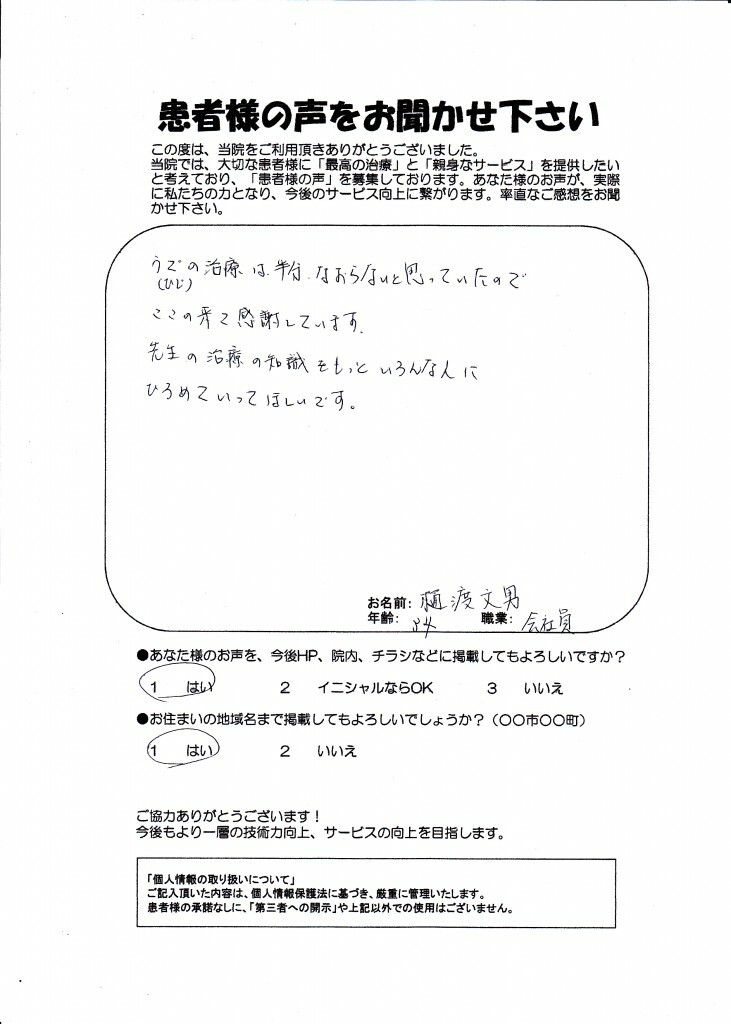 患者様の声をお聞かせ下さい
この度は、当院をご利用頂きありがとうございました。
当院では、大切な患者様に「最高の治療」と「親身なサービス」を提供したい
と考えており、「患者様の声」を募集しております。あなた様のお声が、実際
に私たちの力となり、今後のサービス向上に繋がります。率直なご感想をお聞
かせ下さい。
うでの治療は半分なおらないと思っていたので
(ひじ)
ここの来て感謝しています。
先生の治療の知識をもっといろんな人に
ひろめていってほしいです。
お名前: 樋渡文男
年齢: 職業: 会社員
●あなた様のお声を、今後HP、院内、チラシなどに掲載してもよろしいですか?
1 はい 2 イニシャルならOK 3 いいえ
●お住まいの地域名まで掲載してもよろしいでしょうか?(〇〇市〇〇町)
1 はい 2 いいえ
ご協力ありがとうございます!
今後もより一層の技術力向上、サービスの向上を目指します。
「個人情報の取り扱いについて」
ご記入頂いた内容は、個人情報保護法に基づき、厳重に管理いたします。
患者様の承諾なしに、「第三者への開示」や上記以外での使用はございません。